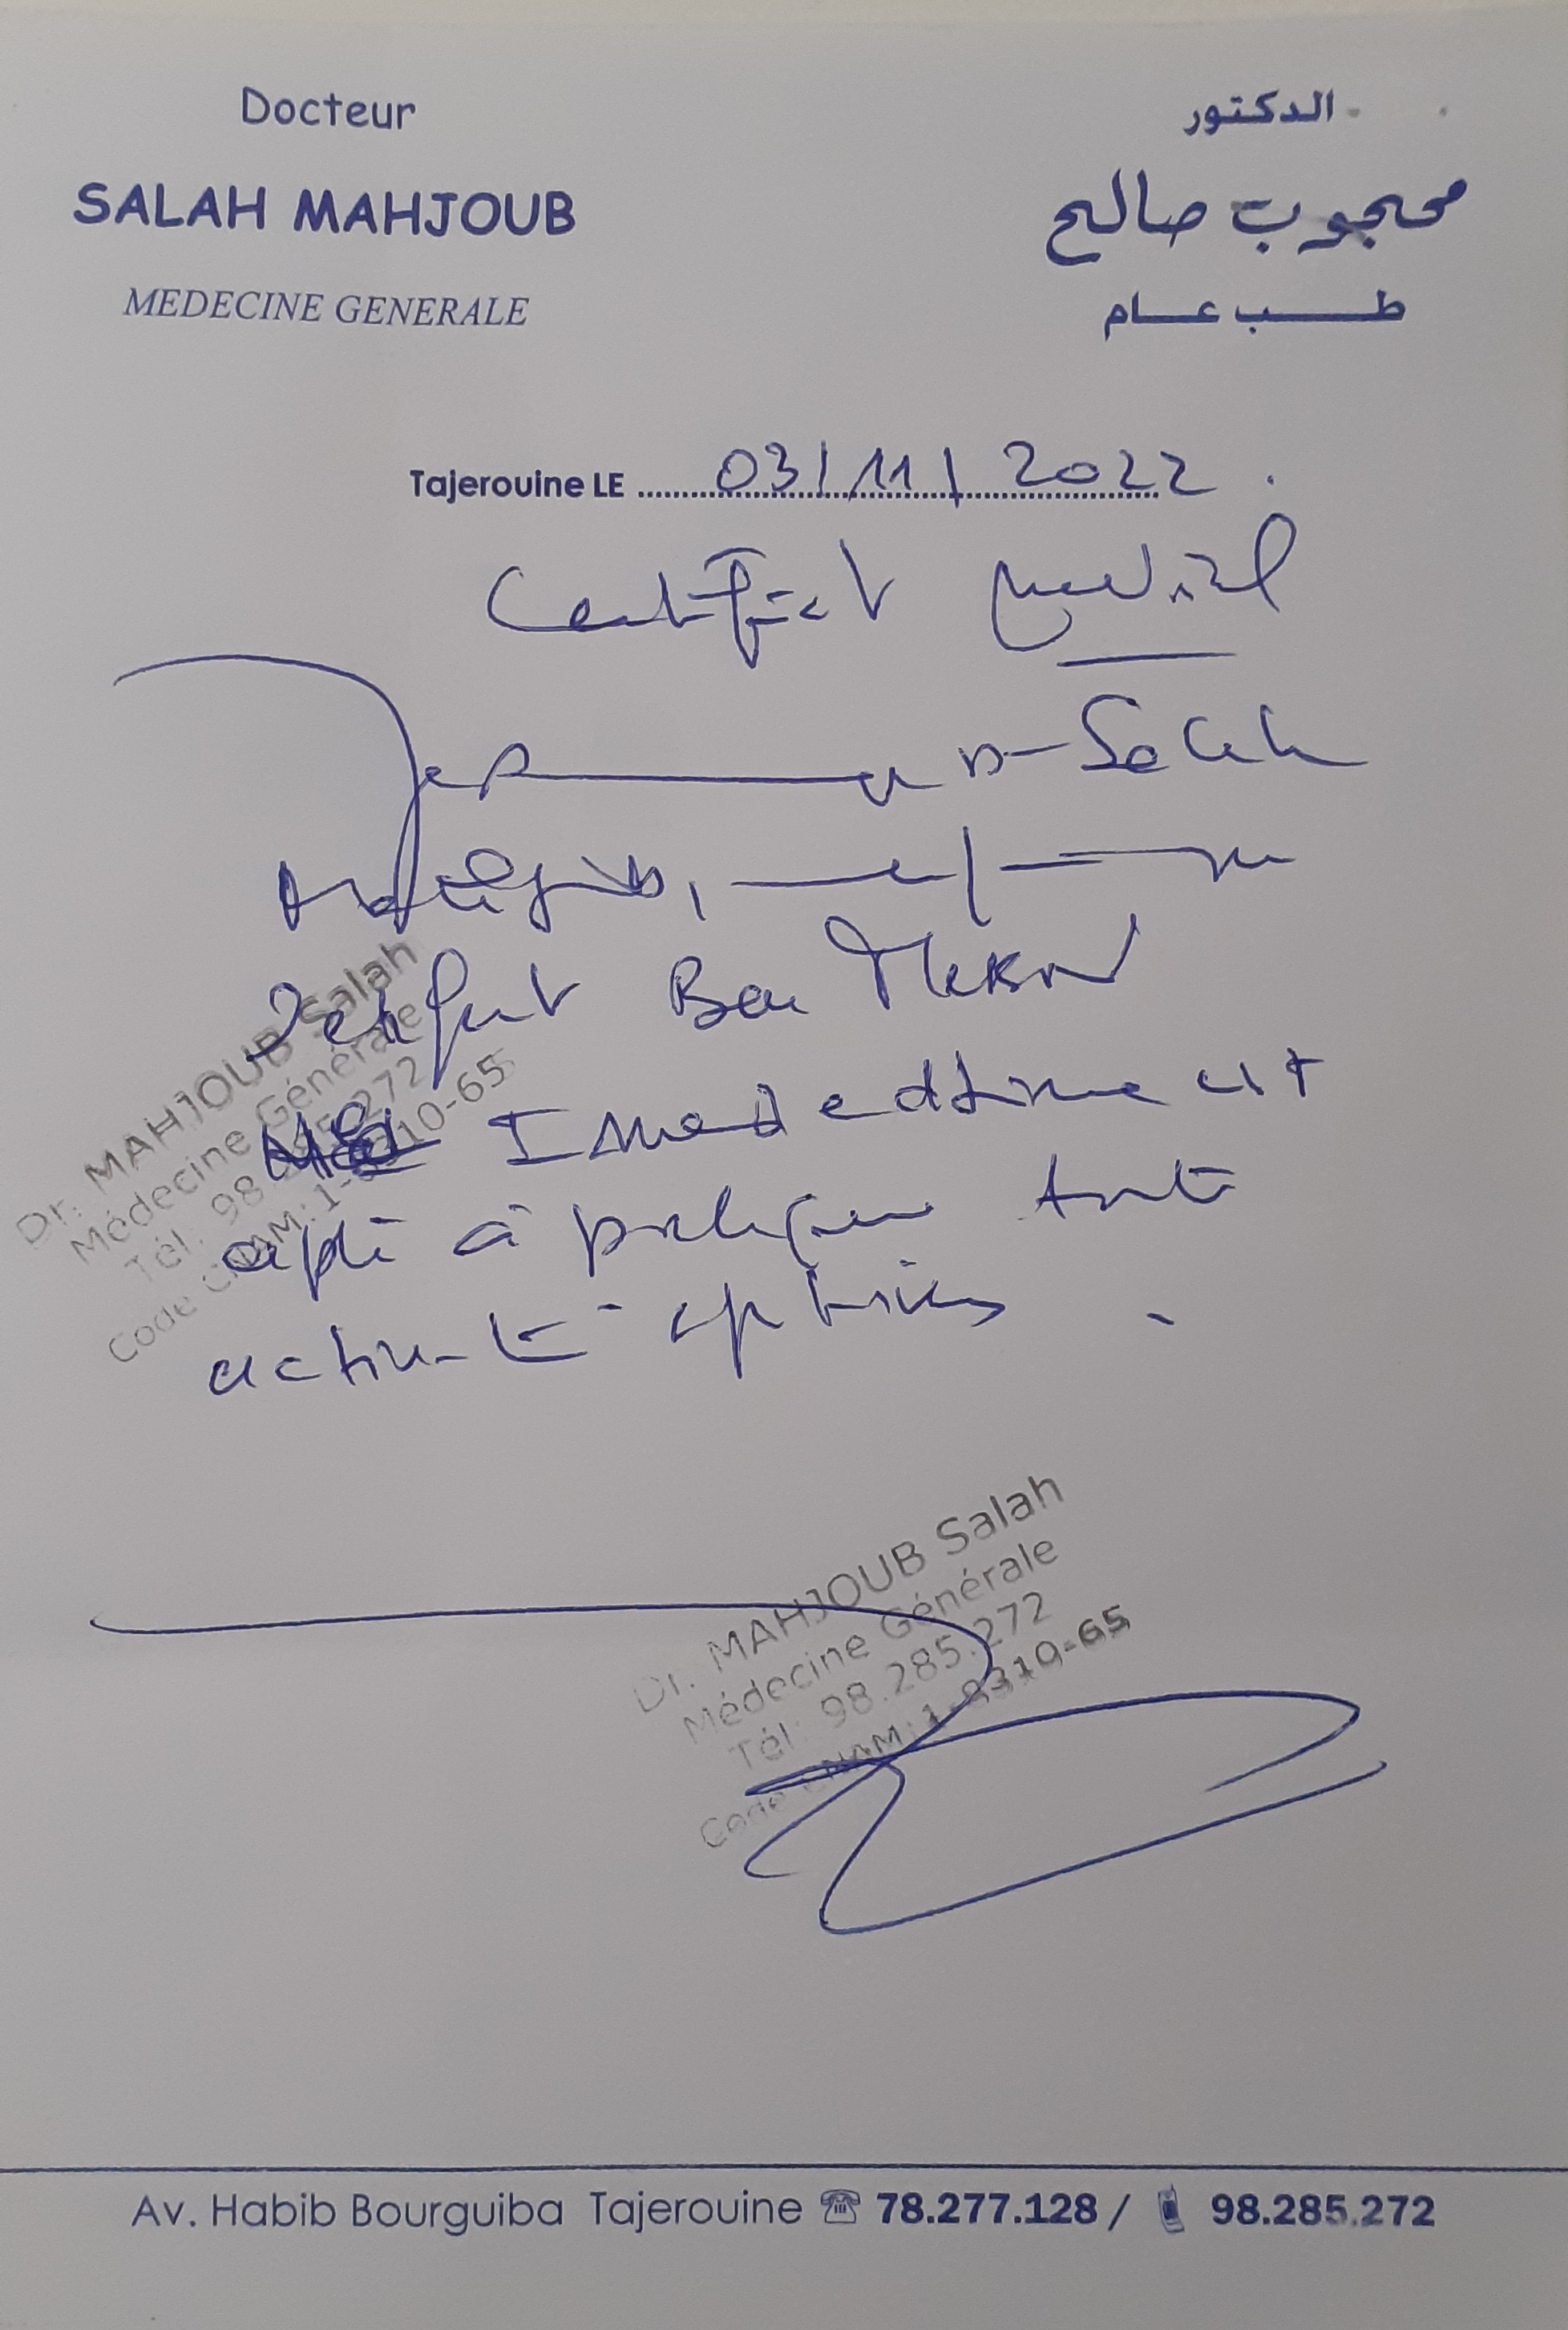 Docteur
SALAH MAHJOUB
MEDECINE GENERALE
الدكتور
محجوب صالح
طب عام
Tajerouine LE 03/11/2022
Certificat medical
Salah
Mahjoub,
Ben
Imededdine est
apte à pratiquer toute
activité
Dr. MAHJOUB Salah
Médecine Générale
Tél: 98.285.272
Code CNAM: 1- 10-65
Dr. MAHJOUB Salah
Médecine Générale
Tél: 98.285.272
Code CNAM: 1- 310-65
Av. Habib Bourguiba Tajerouine 78.277.128 / 98.285.272